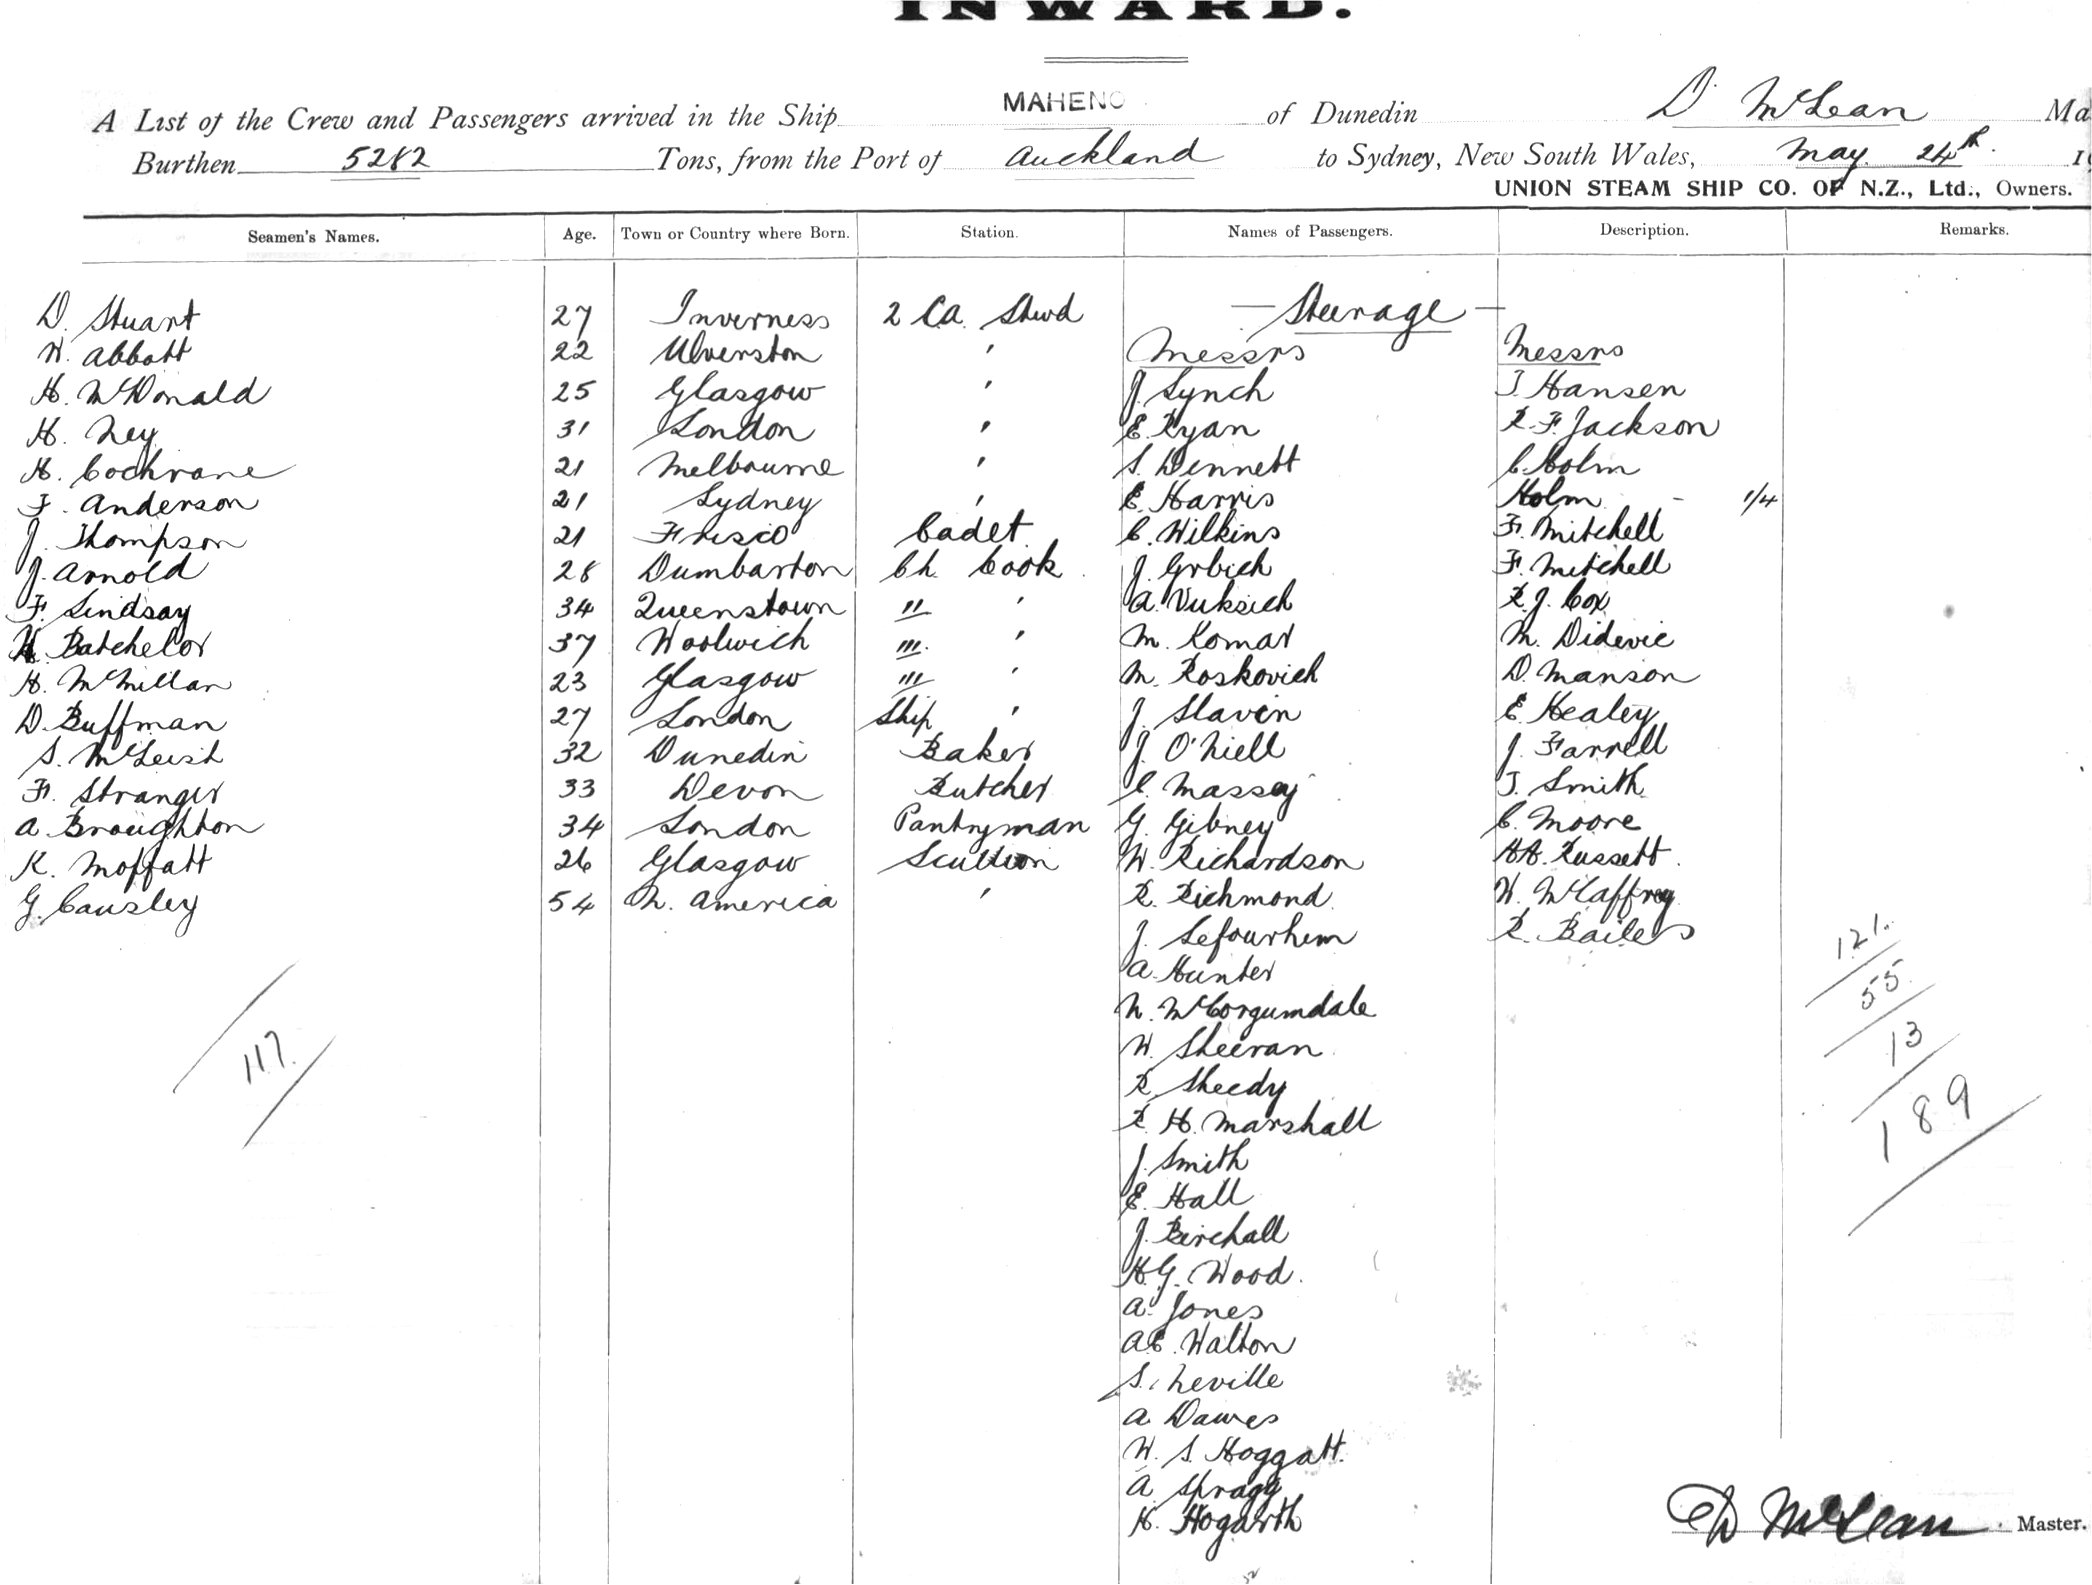 INWARD.
A List of the Crew and Passengers arrived in the Ship MAHENO of Dunedin D. McLean Ma
Burthen 5282 Tons, from the Port of Auckland to Sydney, New South Wales, May 24th 19
UNION STEAM SHIP CO. OF N.Z., Ltd., Owners.
Seamen's Names. Age. Town or Country where Born. Station. Names of Passengers. Description. Remarks.
D. Stuart 27 Inverness 2 Ca. Stwd — Steerage —
W. Abbott 22 Ulverston ' Messrs Messrs
H. McDonald 25 Glasgow ' J. Lynch J. Hansen
H. Ney 31 London ' E. Ryan R. F. Jackson
H. Cochrane 21 Melbourne ' S. Dennett C. Holm
F. Anderson 21 Sydney ' E. Harris Holm - 1/4
J. Thompson 21 Frisco Cadet C. Wilkins F. Mitchell
J. Arnold 28 Dumbarton Ch. Cook J. Grbich F. Mitchell
F. Lindsay 34 Queenstown " ' A. Vuksich R. J. Cox
H. Batchelor 37 Woolwich ''' ' M. Komar M. Didevic
H. McMillan 23 Glasgow ''' ' M. Roskovich D. Manson
D. Buffman 27 London Ship ' J. Slavin E. Healey
S. McLeish 32 Dunedin Baker J. O'Niell J. Farrell
F. Stranger 33 Devon Butcher C. Massey J. Smith
A. Broughton 34 London Pantryman G. Gibney C. Moore
K. Moffatt 26 Glasgow Scullion W. Richardson AA. Russett
G. Causley 54 N. America ' R. Richmond W. McCaffrey
J. Lefourhem R. Bailes
A. Hunter
N. McCorgumdale
W. Sheeran
R. Sheedy
R. H. Marshall
J. Smith
E. Hall
J. Birchall
H. G. Wood
A. Jones
A.E. Walton
S. Neville
A. Dawes
W. S. Hoggatt
A. Spragg
H. Hogarth
117.
121.
55.
13
189
D McLean Master.